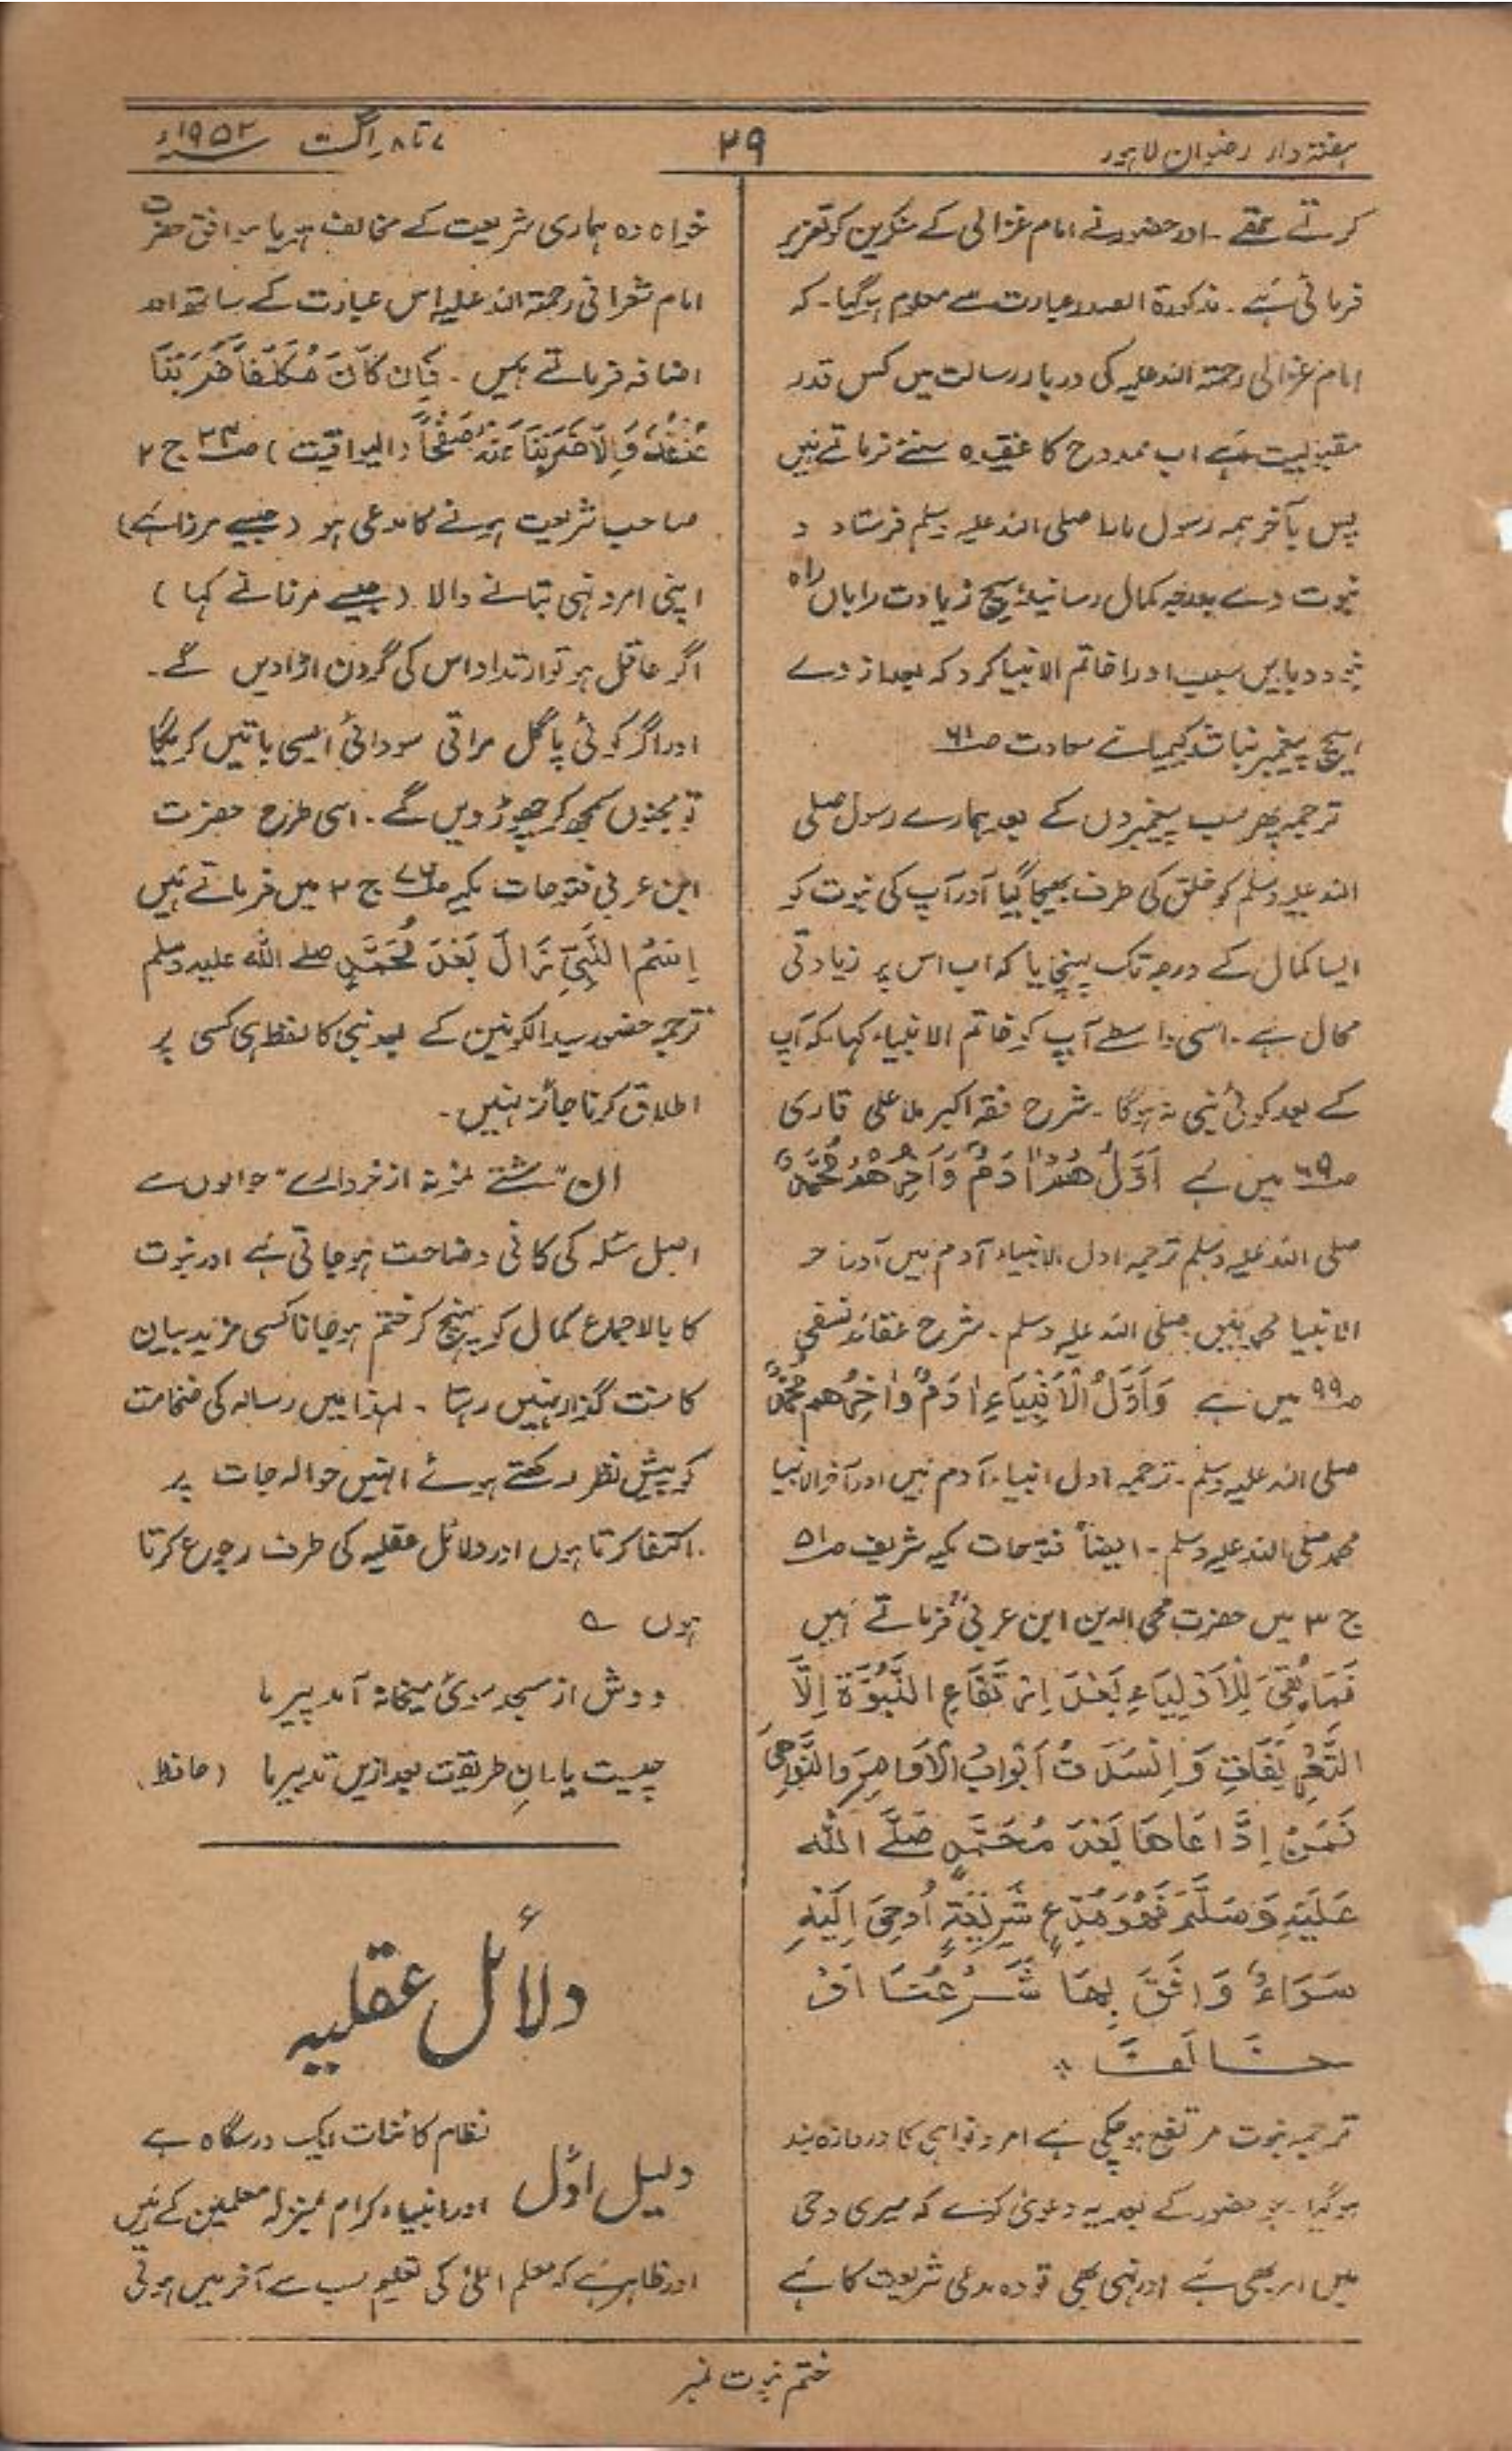 ہفتہ وار رضوان لاہور
۲۹
۷ تا ۸ اگست ۱۹۵۲ء
کرتے تھے ۔ اور حضور نے امام غزالی کے منکرین کو تعزیر
فرمائی ہے ۔ مذکورۃ الصدر عبارت سے معلوم ہو گیا ۔ کہ
امام غزالی رحمۃ اللہ علیہ کی دربار رسالت میں کس قدر
مقبولیت ہے اب ممدوح کا عقیدہ سنئے فرماتے ہیں
پس بآخر ہمہ رسول مارا صلی اللہ علیہ وسلم فرستاد و
نبوت وے بدرجہ کمال رسانید ہیچ زیادت را باں راہ
نبود و بایں سبب او را خاتم الانبیا کرد کہ بعد از وے
ہیچ پیغمبر نباشد کیمیائے سعادت صـ۶۱
ترجمہ پھر سب پیغمبروں کے بعد ہمارے رسول صلی
اللہ علیہ وسلم کو خلق کی طرف بھیجا گیا آور آپ کی نبوت کو
ایسا کمال کے درجہ تک پہنچایا کہ اب اس پر زیادتی
محال ہے ۔ اسی واسطے آپ کو خاتم الانبیاء کہا ۔ کہ آپ
کے بعد کوئی نبی نہ ہوگا ۔ شرح فقہ اکبر ملا علی قاری
صـ۶۹ میں ہے اَوَّلُ ھُمْ اٰدَمُ وَاٰخِرُ ھُمْ مُحَمَّدٌ
صلی اللہ علیہ وسلم ترجمہ اول الانبیاء آدم ہیں آور آخر
الانبیا محمد ہیں صلی اللہ علیہ وسلم ۔ شرح عقائد نسفی
صـ۹۹ میں ہے وَاَوَّلُ الْاَنْبِیَاءِ اٰدَمُ وَاٰخِرُھم مُحَمَّدٌ
صلی اللہ علیہ وسلم ۔ ترجمہ اول انبیاء آدم ہیں اور آخر الانبیا
محمد صلی اللہ علیہ وسلم ۔ ایضاً فتوحات مکیہ شریف صـ۵۱
ج ۳ میں حضرت محی الدین ابن عربی فرماتے ہیں
فَمَا بَقِیَ لِلْاَوْلِیَاءِ بَعْدَ اِرْتِفَاعِ النُّبُوَّۃِ اِلَّا
التَّعْرِیْفَاتِ وَاِنْسَدَتْ اَبْوَابُ الْاَوَامِرِ وَالنَّوَاھِیْ
فَمَنْ اِدَّعَاھَا بَعْدَ مُحَمَّدٍ صَلَّے اللہ
عَلَیْہِ وَسَلَّمَ فَھُوَ مُدَّعٍ شَرِیْعَۃٍ اُوْحِیَ اِلَیْہِ
سَوَاءٌ وَافَقَ بِھَا شَرْعُنَا اَوْ
خَالَفَنَا ٭
ترجمہ نبوت مرتفع ہوچکی ہے امر ونواہی کا دروازہ بند
ہوگیا ۔ جو حضور کے بعد یہ دعویٰ کرے کہ میری وحی
میں امر بھی ہے اور نہی بھی تو وہ مدعی شریعت کا ہے
خواہ وہ ہماری شریعت کے مخالف ہو یا موافق حضرت
امام شعرانی رحمۃ اللہ علیہ اس عبارت کے ساتھ اور
اضافہ فرماتے ہیں ۔ فَاِن کَانَ مُکَلَّفاً ضَرَبْنَا
عُنُقَہُ وَاِلَّا ضَرَبْنَا عَنْہُ صَفْحًا (الیواقیت) صـ۳۴ ج ۲
صاحب شریعت ہونے کا مدعی ہو (جیسے مرزا ہے)
اپنی امر ونہی بتانے والا (جیسے مرزا نے کہا)
اگر عاقل ہو تو ارتداداً اس کی گردن اڑا دیں گے ۔
اور اگر کوئی پاگل مراقی سودائی ایسی باتیں کریگا
تو مجنوں سمجھ کر چھوڑ دیں گے ۔ اسی طرح حضرت
ابن عربی فتوحات مکیہ ج ۳ میں فرماتے ہیں
اِسْمُ النَّبِیِّ زَالَ بَعْدَ مُحَمَّدٍ صلے اللہ علیہ وسلم
ترجمہ حضور سید الکونین کے بعد نبی کا لفظ ہی کسی پر
اطلاق کرنا جائز نہیں ۔
ان “مشتے نمونہ از خروارے” حوالوں سے
اصل مسئلہ کی کافی وضاحت ہوجاتی ہے اور نبوت
کا بالاجماع کمال کو پہنچ کر ختم ہوجانا کسی مزید بیان
کا منت گذار نہیں رہتا ۔ لہذا میں رسالہ کی ضخامت
کو پیش نظر رکھتے ہوئے انہیں حوالہ جات پر
اکتفا کرتا ہوں اور دلائل عقلیہ کی طرف رجوع کرتا
ہوں ے
دوش از مسجد سوئی میخانہ آمد پیر ما
چیست یارانِ طریقت بعد ازیں تدبیر ما (حافظ)
دلائل عقلیہ
دلیل اوّل
نظام کائنات ایک درسگاہ ہے
اور انبیاء کرام بمنزلہ معلمین کے ہیں
اور ظاہر ہے کہ معلم اعلیٰ کی تعلیم سب سے آخر میں ہوتی
ختم نبوت نمبر